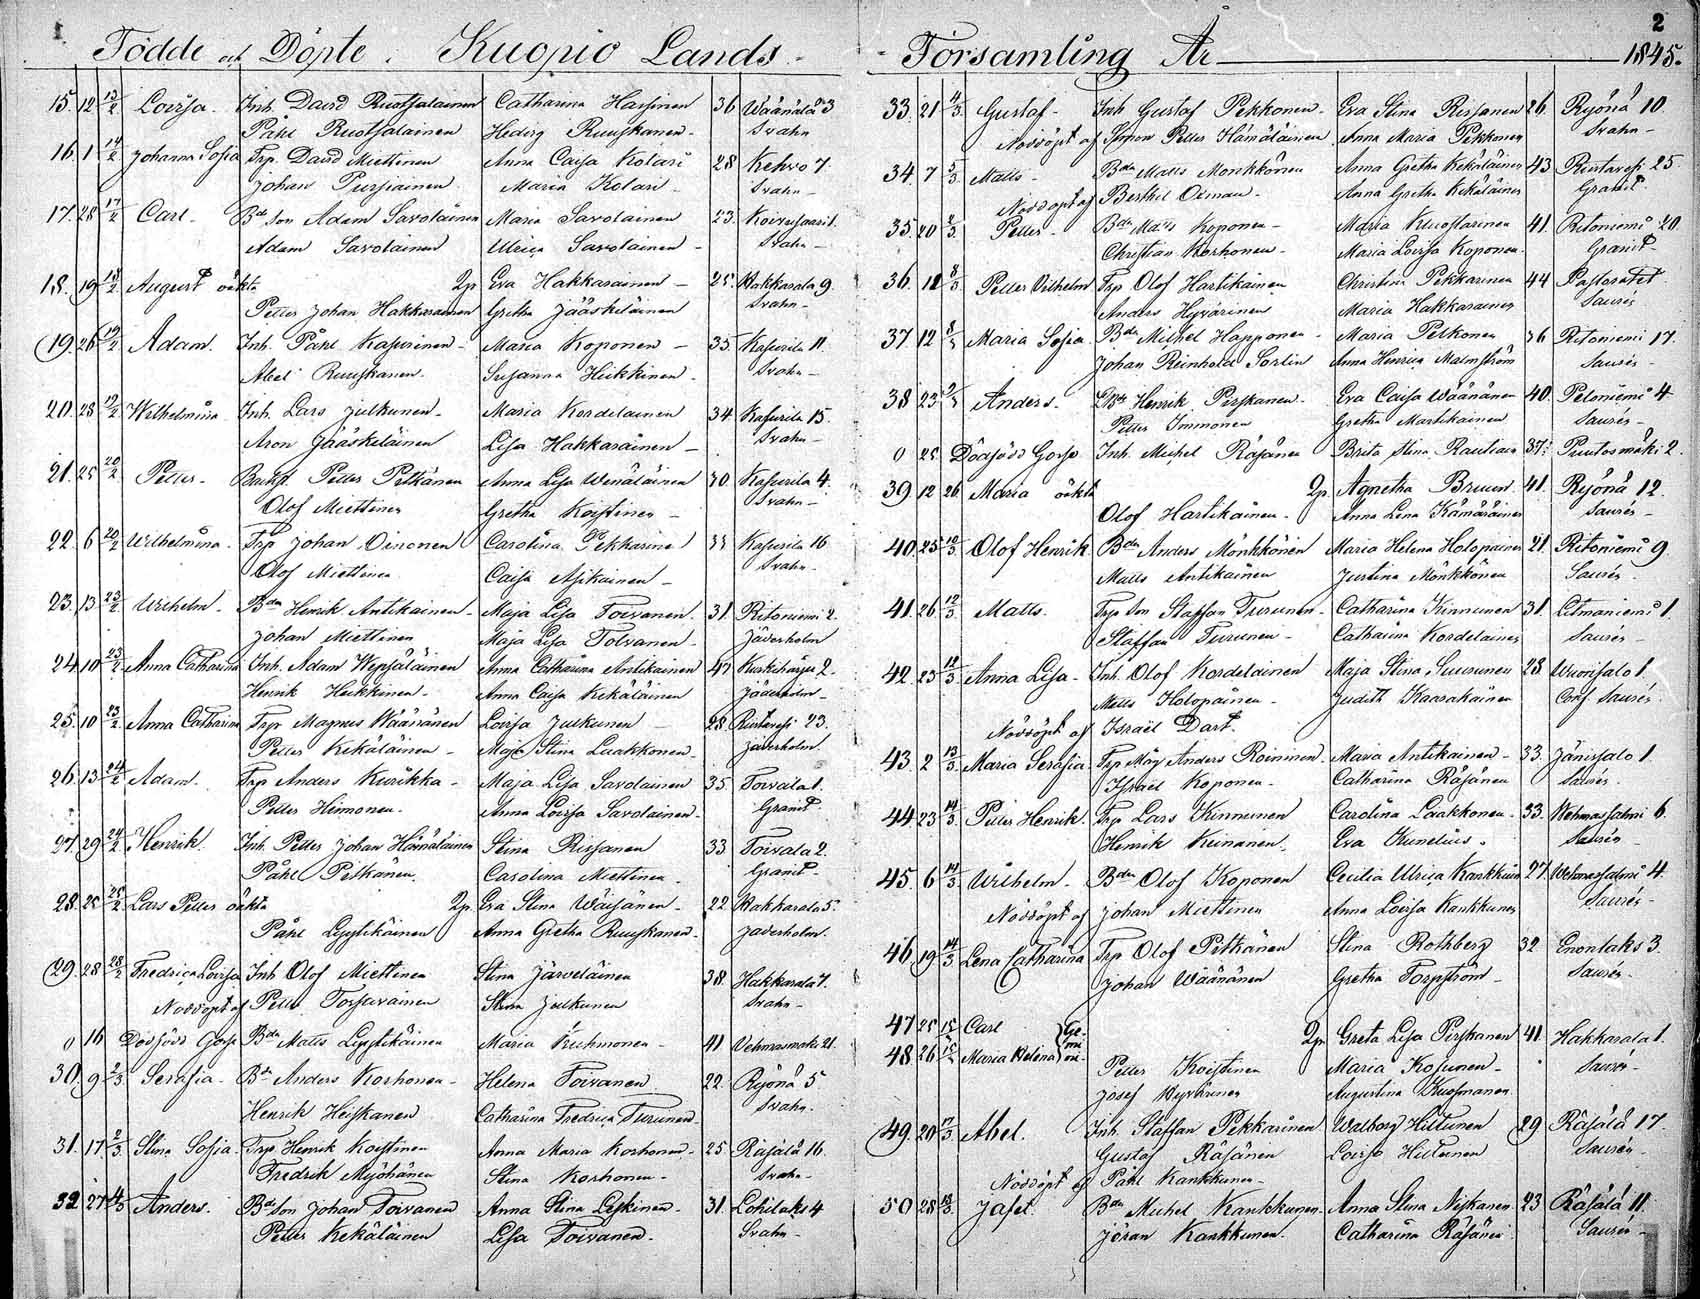 2
Födde och Döpte. Kuopio Lands Församling År 1845.
15. 12 13/2 Lovisa. Inh. David Ruotsalainen Catharina Hassinen 36 Wäänälä 3
Påhl Ruotsalainen Hedvig Ruuskanen Svahn
16. 1 14/2 Johanna Sofia Trp. David Miettinen Anna Caisa Kolari 28 Kehvo 7
Johan Pursiainen Maria Kolari Svahn
17. 28 17/2 Carl. Bdeson Adam Savolainen Maria Savolainen 23. Koivusaari 1.
Adam Savolainen Ulrica Savolainen Svahn
18. 19 18/2 August oäkta 2p Eva Hakkarainen 25. Hakkarala 9
Petter Johan Hakkarainen Gretha Jääskeläinen Svahn
19. 26 19/2 Adam. Inh. Påhl Kasurinen Maria Koponen 35 Kasurila 11.
Abel Ruuskanen. Susanna Heikkinen Svahn
20. 28 19/2 Wilhelmina Inh. Lars Julkunen Maria Kordelainen 34 Kasurila 15.
Aron Jääskeläinen Lisa Hakkarainen Svahn
21. 25 20/2 Petter. Petter Pitkänen Anna Lisa Wenäläinen 30 Kasurila 4.
Olof Miettinen Gretha Koistinen Svahn
22. 6 20/2 Wilhelmina. Trp Johan Oinonen Carolina Pekkarinen Kasurila 16
Olof Miettinen Caisa Asikainen Svahn
23. 13 23/2 Wilhelm. Bden Henrik Antikainen Maja Lisa Toivanen 31. Ritoniemi 2.
Johan Miettinen Maja Lisa Tolvanen Jäderholm
24. 10 23/2 Anna Catharina Inh. Adam Wepsäläinen Anna Catharina Antikainen 47 Kurkiharju 2.
Henrik Heikkinen Anna Caisa Kekäläinen Jäderholm
25. 10 23/2 Anna Catharina Trp Magnus Wäänänen Lovisa Julkunen 28 Rustavesi 23.
Petter Kekäläinen Maja Stina Laakkonen Jäderholm.
26. 13 24/2 Adam. Trp Anders Kurikka Maja Lisa Savolainen 35. Toivala 1.
Petter Heimonen. Anna Lovisa Savolainen Granit
27. 29 24/2 Henrik. Inh. Petter Johan Hämäläinen Stina Rissanen 33 Toivala 2.
Påhl Pitkänen. Carolina Miettinen Granit
28. 25 25/2 Lars Petter oäkta 2p Eva Stina Wäisänen 22 Hakkarala 5.
Påhl Lyytikäinen Anna Gretha Ruuskanen Jäderholm.
29. 28 28/2 Fredrica Lovisa Inh Olof Miettinen Stina Järveläinen 38. Hakkarala 7.
Nöddöpt af Petter Torsavainen Stina Julkunen Svahn
0 16 Dödfödd Gosse Bden Matts Lyytikäinen Maria 41 Vehmasmäki 21.
30. 9 2/3 Serafia Bd Anders Korhonen Helena Toivanen 22. Ryönä 5
Henrik Heiskanen Catharina Fredrica Turunen Svahn.
31. 17 2/3 Stina Sofia Trp Henrik Koistinen Anna Maria Korhonen 25 Räsälä 16.
Fredrik Myöhänen Stina Korhonen Svahn
32 27 4/3 Anders. Bdeson Johan Toivanen Anna Stina Leskinen 31. Lohilaks 4
Petter Kekäläinen Lisa Toivanen. Svahn
33. 21 4/3 Gustaf Inh Gustaf Pekkonen Eva Stina Rissanen 26. Ryönä 10
Nöddöpt af Simon Petter Hämäläinen Anna Maria Pekkonen Svahn
34 7 5/3 Matts Bden Matts Monkkönen Anna Gretha Kekäläinen 43 Rustavesi 25
Nöddöpt af Berthil Oinan Anna Gretha Kekäläinen Granit
35. 20 2/3 Petter Bden Matts Koponen Maria Kuosmainen 41. Ritoniemi 20.
Christian Korhonen Maria Lovisa Koponen Granit
36. 12 8/3 Petter Vilhelm Trp Olof Hartikainen Christina Pekkarinen 44 Pastoratet
Anders Hyvärinen Maria Hakkarainen Saurén
37 12 8/3 Maria Sofia Bden Michel Happonen Maria Pelkonen 36 Ritoniemi 17.
Johan Reinhold Sorlin Anna Henrica Malmström Saurén
38 23 9/3 Anders. Bde Henrik Pirskanen Eva Caisa Wäänänen 40. Peltoniemi 4
Petter Immonen Gretha Martikainen Saurén
0 25 Dödfödd Gosse Inh. Michel Räsänen Brita Stina Rautiain 37. Puutosmäki 2.
39 12 26. Maria oäkta 2p. Agnetha Bruun. 41. Ryönä 12.
Olof Hartikainen Anna Lena Kämäräinen Saurén
40. 25 10/3 Olof Henrik Bden Anders Mönkkönen Maria Helena Holopainen 21. Ritoniemi 9
Matts Antikainen Justina Mönkkönen Saurén
41. 26 12/3 Matts. Trp Son Staffan Turunen Catharina Kinnunen 31 Litmaniemi 1.
Staffan Turunen Catharina Kordelainen Saurén
42. 23 12/3 Anna Lisa Inh. Olof Kordelainen Maja Stina Suurunen 28 Wuorisalo 1.
Matts Holopainen Judith Kaarakainen Conf. Saurén
Nöddöpt af Israël Dart.
43. 2 13/3 Maria Serafia Trp Måg Anders Roininen Maria Antikainen 33. Jänissalo 1.
Israël Koponen Catharina Räsänen Saurén
44. 23 14/3 Petter Henrik. Trp Lars Kinnunen Carolina Laakkonen 33. Wehmassalmi 6.
Henrik Keinänen. Eva Kunelius. Saurén
45. 6 14/3 Wilhelm. Bden Olof Koponen Cecilia Ulrica Kankkunen 27 Wehmassalmi 4.
Nöddöpt af Johan Miettinen Anna Lovisa Kankkunen Saurén
46. 19 14/3 Lena Catharina Trp Olof Pitkänen Stina Rothberg 32 Enonlaks 3.
Johan Wäänänen Gretha Torpström Saurén
47 25 15/3 Carl Gemini 2p Greta Lisa Pirskanen 41. Hakkarala 1.
48. 26 15/3 Maria Helena Petter Koistinen Maria Kosunen Saurén
Josef Hyvärinen Augustina Kuosmanen
49. 20 17/3 Abel. Inh. Staffan Pekkarinen Walborg Hiltunen 29 Räsälä 17.
Gustaf Räsänen Lovisa Hiltunen Saurén
Nöddöpt af Påhl Kankkunen
50 28 18/3 Jafet. Bden Michel Kankkunen Anna Stina Niskanen 23 Räsälä 11.
Jöran Kankkunen. Catharina Räsänen Saurén